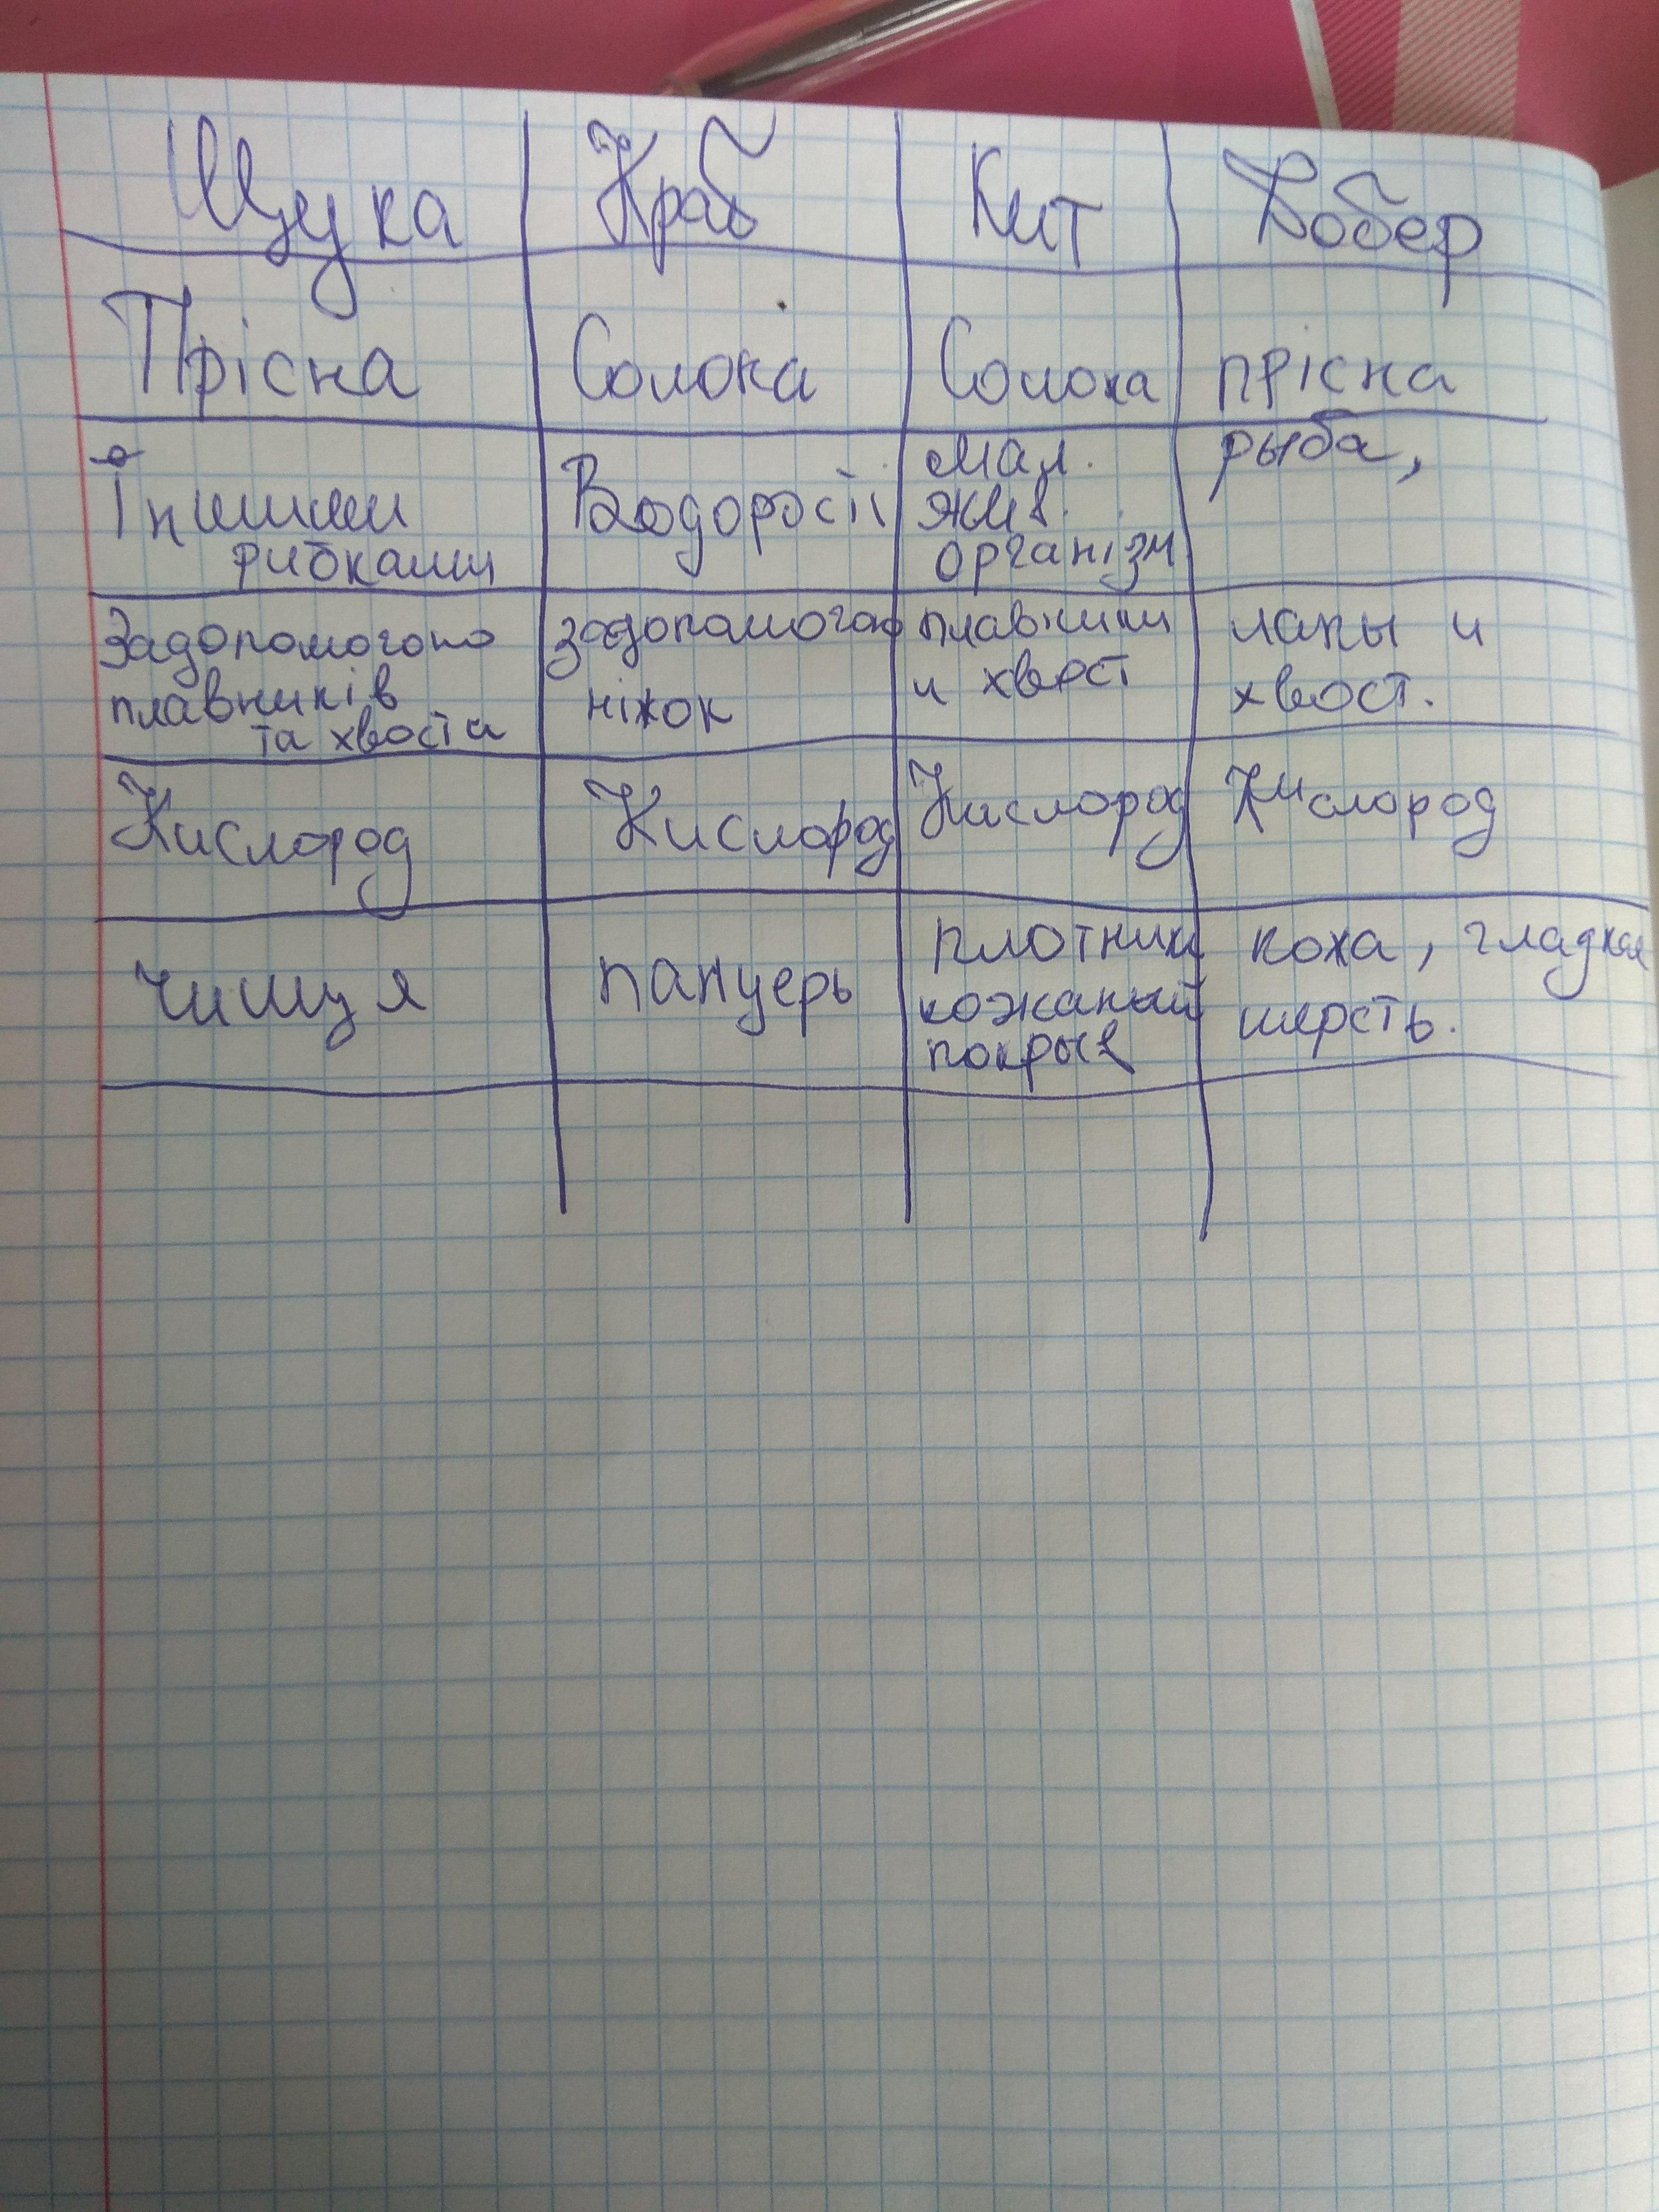 Щука Краб Кит Бобер
Прісна Солона Солона прісна
Іншими рибками Водоросіі мал. жив. організм рыба,
Задопомогою плавників та хвоста задопомогою ніжок плавники и хвост лапы и хвост.
Кислород Кислород Кислород Кислород
чишуя панцерь плотний кожаный покрыв коха, гладкая шерсть.